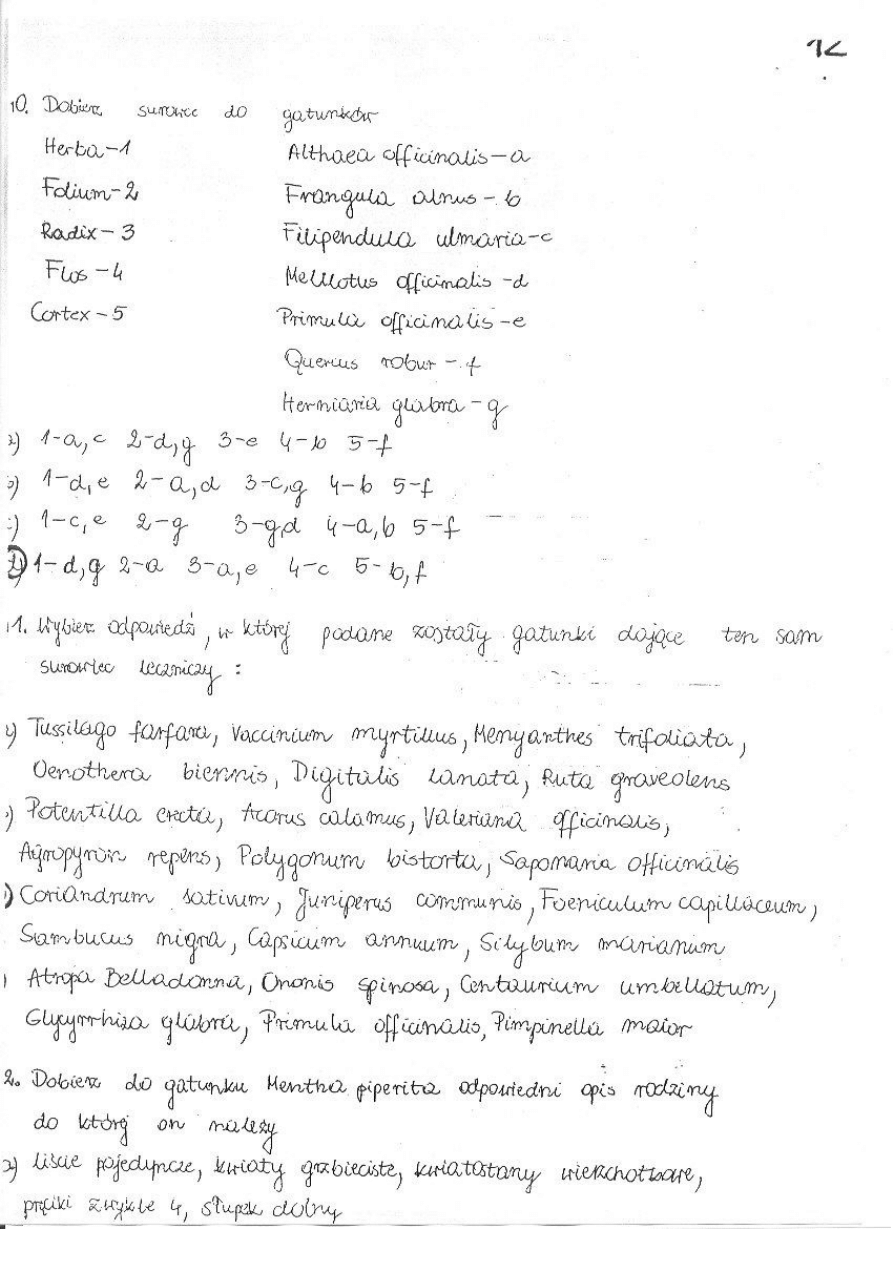 12
10. Dobierz surowce do gatunków
Herba-1 Althaea officinalis-a
Folium-2 Frangula alnus-b
Radix-3 Filipendula ulmaria-c
Flos-4 Melilotus officinalis-d
Cortex-5 Primula officinalis-e
Quercus robur-f
Herniaria glabra-g
a) 1-a,c 2-d,g 3-e 4-b 5-f
b) 1-d,e 2-a,d 3-c,g 4-b 5-f
c) 1-c,e 2-g 3-g,d 4-a,b 5-f
d) 1-d,g 2-a 3-a,e 4-c 5-b,f
11. Wybierz odpowiedź, w której podane zostały gatunki dające ten sam
surowiec leczniczy:
a) Tussilago farfara, Vaccinium myrtillus, Menyanthes trifoliata,
Oenothera biennis, Digitalis lanata, Ruta graveolens
b) Potentilla erecta, Acorus calamus, Valeriana officinalis,
Agropyron repens, Polygonum bistorta, Saponaria officinalis
) Coriandrum sativum, Juniperus communis, Foeniculum capillaceum,
Sambucus nigra, Capsicum annuum, Silybum marianum
Atropa Belladonna, Ononis spinosa, Centaurium umbellatum,
Glycyrrhiza glabra, Primula officinalis, Pimpinella maior
2. Dobierz do gatunku Mentha piperita odpowiedni opis rodziny
do której on należy
a) liście pojedyncze, kwiaty grzbieciste, kwiatostany wierzchotkowe,
pręciki zwykle 4, słupek dolny